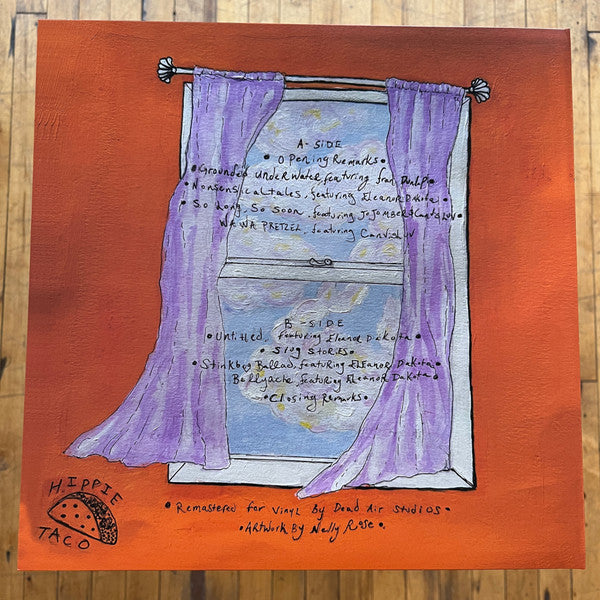 A-SIDE
• Opening Remarks •
• Grounded Underwater, featuring fran Dunlp •
• Nonsensical tales, featuring Eleanor Dakota •
• So Long, So Soon, featuring JoJomber &
WAWA PRETZEL, featuring Canvishuv
B-SIDE
• Untitled, featuring Eleanor Dakota •
• Slug Stories •
• Stinkbug Ballad, featuring Eleanor Dakota •
Bellyache, featuring Eleanor Dakota •
• Closing Remarks •
HIPPIE
TACO
• Remastered for Vinyl By Dead Air Studios •
• Artwork By Nelly Rose •